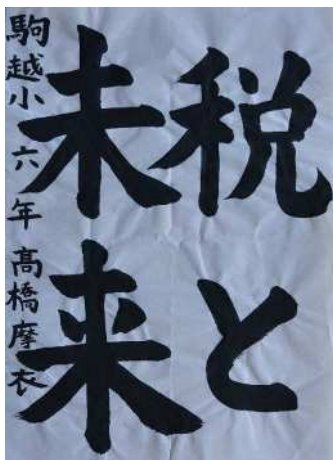 税と
未来
駒越小 六年 髙橋摩衣